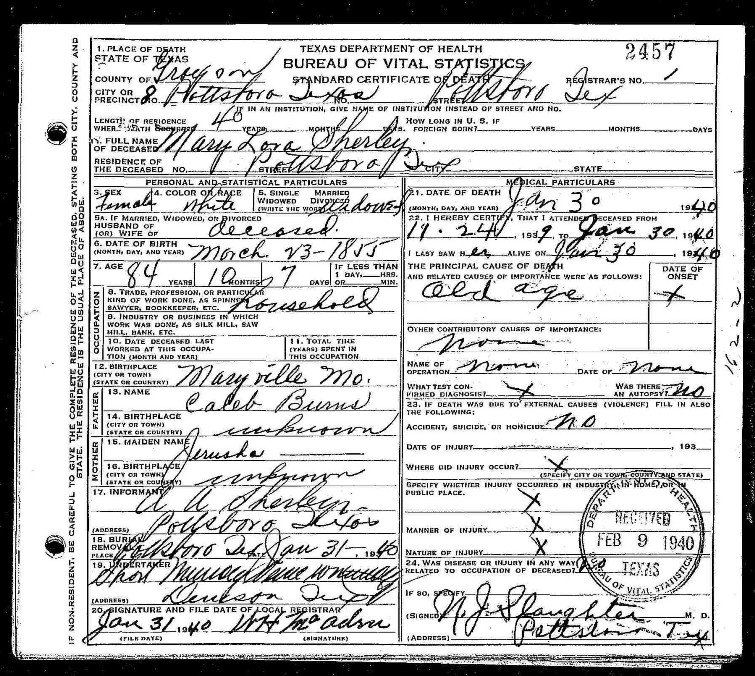 TEXAS DEPARTMENT OF HEALTH
BUREAU OF VITAL STATISTICS
STANDARD CERTIFICATE OF DEATH
2457
1. PLACE OF DEATH
STATE OF TEXAS
COUNTY OF Grayson
REGISTRAR'S NO. 1
CITY OR PRECINCT NO. 8 Pottsboro Texas
STREET Pottsboro Tex
IF IN AN INSTITUTION, GIVE NAME OF INSTITUTION INSTEAD OF STREET AND NO.
LENGTH OF RESIDENCE WHERE DEATH OCCURRED 40 YEARS MONTHS DAYS. HOW LONG IN U. S. IF FOREIGN BORN? YEARS MONTHS DAYS
2. FULL NAME OF DECEASED Mary Lora Sherley
RESIDENCE OF THE DECEASED NO. STREET Pottsboro Tex STATE
PERSONAL AND STATISTICAL PARTICULARS
3. SEX Female
4. COLOR OR RACE White
5. SINGLE MARRIED WIDOWED DIVORCED (WRITE THE WORD) widowed
5A. IF MARRIED, WIDOWED, OR DIVORCED
HUSBAND OF (OR) WIFE OF deceased.
6. DATE OF BIRTH (MONTH, DAY, AND YEAR) March 23-1855
7. AGE 84 YEARS 10 MONTHS 7 DAYS IF LESS THAN 1 DAY, HRS. OR MIN.
OCCUPATION
8. TRADE, PROFESSION, OR PARTICULAR KIND OF WORK DONE, AS SPINNER, SAWYER, BOOKKEEPER, ETC. Household
9. INDUSTRY OR BUSINESS IN WHICH WORK WAS DONE, AS SILK MILL, SAW MILL, BANK, ETC.
10. DATE DECEASED LAST WORKED AT THIS OCCUPATION (MONTH AND YEAR)
11. TOTAL TIME (YEARS) SPENT IN THIS OCCUPATION
12. BIRTHPLACE (CITY OR TOWN) (STATE OR COUNTRY) Maryville Mo.
FATHER
13. NAME Caleb Burns
14. BIRTHPLACE (CITY OR TOWN) (STATE OR COUNTRY) unknown
MOTHER
15. MAIDEN NAME Jerusha
16. BIRTHPLACE (CITY OR TOWN) (STATE OR COUNTRY) unknown
17. INFORMANT A A Sherley
(ADDRESS) Pottsboro, Texas
18. BURIAL REMOVAL
PLACE Pottsboro Tex DATE Jan 31-, 1940
19. UNDERTAKER Short Murray
(ADDRESS) Denison Tex
20. SIGNATURE AND FILE DATE OF LOCAL REGISTRAR
Jan 31 1940 WH McAdru
(FILE DATE) (SIGNATURE)
MEDICAL PARTICULARS
21. DATE OF DEATH (MONTH, DAY, AND YEAR) Jan 30 1940
22. I HEREBY CERTIFY, THAT I ATTENDED DECEASED FROM
11-24, 1939 To Jan 30, 1940
I LAST SAW her ALIVE ON Jan 30 1940
THE PRINCIPAL CAUSE OF DEATH AND RELATED CAUSES OF IMPORTANCE WERE AS FOLLOWS:
DATE OF ONSET
Old age X
OTHER CONTRIBUTORY CAUSES OF IMPORTANCE:
None
162-2
NAME OF OPERATION None DATE OF None
WHAT TEST CONFIRMED DIAGNOSIS? X WAS THERE AN AUTOPSY? No
23. IF DEATH WAS DUE TO EXTERNAL CAUSES (VIOLENCE) FILL IN ALSO THE FOLLOWING:
ACCIDENT, SUICIDE, OR HOMICIDE No
DATE OF INJURY 193
WHERE DID INJURY OCCUR? X
(SPECIFY CITY OR TOWN, COUNTY AND STATE)
SPECIFY WHETHER INJURY OCCURRED IN INDUSTRY, HOME, OR IN PUBLIC PLACE. X
MANNER OF INJURY X
NATURE OF INJURY X
24. WAS DISEASE OR INJURY IN ANY WAY RELATED TO OCCUPATION OF DECEASED? No
IF SO, SPECIFY
(SIGNED) N. J. Slaughter M. D.
(ADDRESS) Pottsboro Tex
DEPARTMENT OF HEALTH
RECEIVED
FEB 9 1940
TEXAS
BUREAU OF VITAL STATISTICS
IF NON-RESIDENT, BE CAREFUL TO GIVE THE COMPLETE RESIDENCE OF THE DECEASED, STATING BOTH CITY, COUNTY AND STATE. THE RESIDENCE IS THE USUAL PLACE OF ABODE.